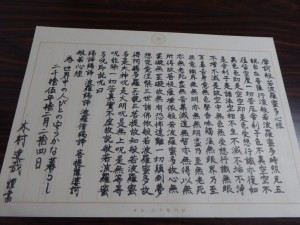 摩訶般若波羅蜜多心経
観自在菩薩行深般若波羅蜜多時照見五
蘊皆空度一切苦厄舎利子色不異空空不
異色色即是空空即是色受想行識亦復如
是舎利子是諸法空相不生不滅不垢不浄
不増不減是故空中無色無受想行識無眼
耳鼻舌身意無色声香味触法無眼界乃至
無意識界無無明亦無無明尽乃至無老死
亦無老死尽無苦集滅道無智亦無得以無
所得故菩提薩埵依般若波羅蜜多故心無
罣礙無罣礙故無有恐怖遠離一切顛倒夢
想究竟涅槃三世諸仏依般若波羅蜜多故
得阿耨多羅三藐三菩提故知般若波羅蜜
多是大神呪是大明呪是無上呪是無等等
呪能除一切苦真実不虚故説般若波羅蜜
多呪即説呪曰
羯諦羯諦 波羅羯諦 波羅僧羯諦 菩提薩婆訶
般若心経
為 世界中の人びとの安らかな暮らし
二千拾伍年拾
木村 謹書